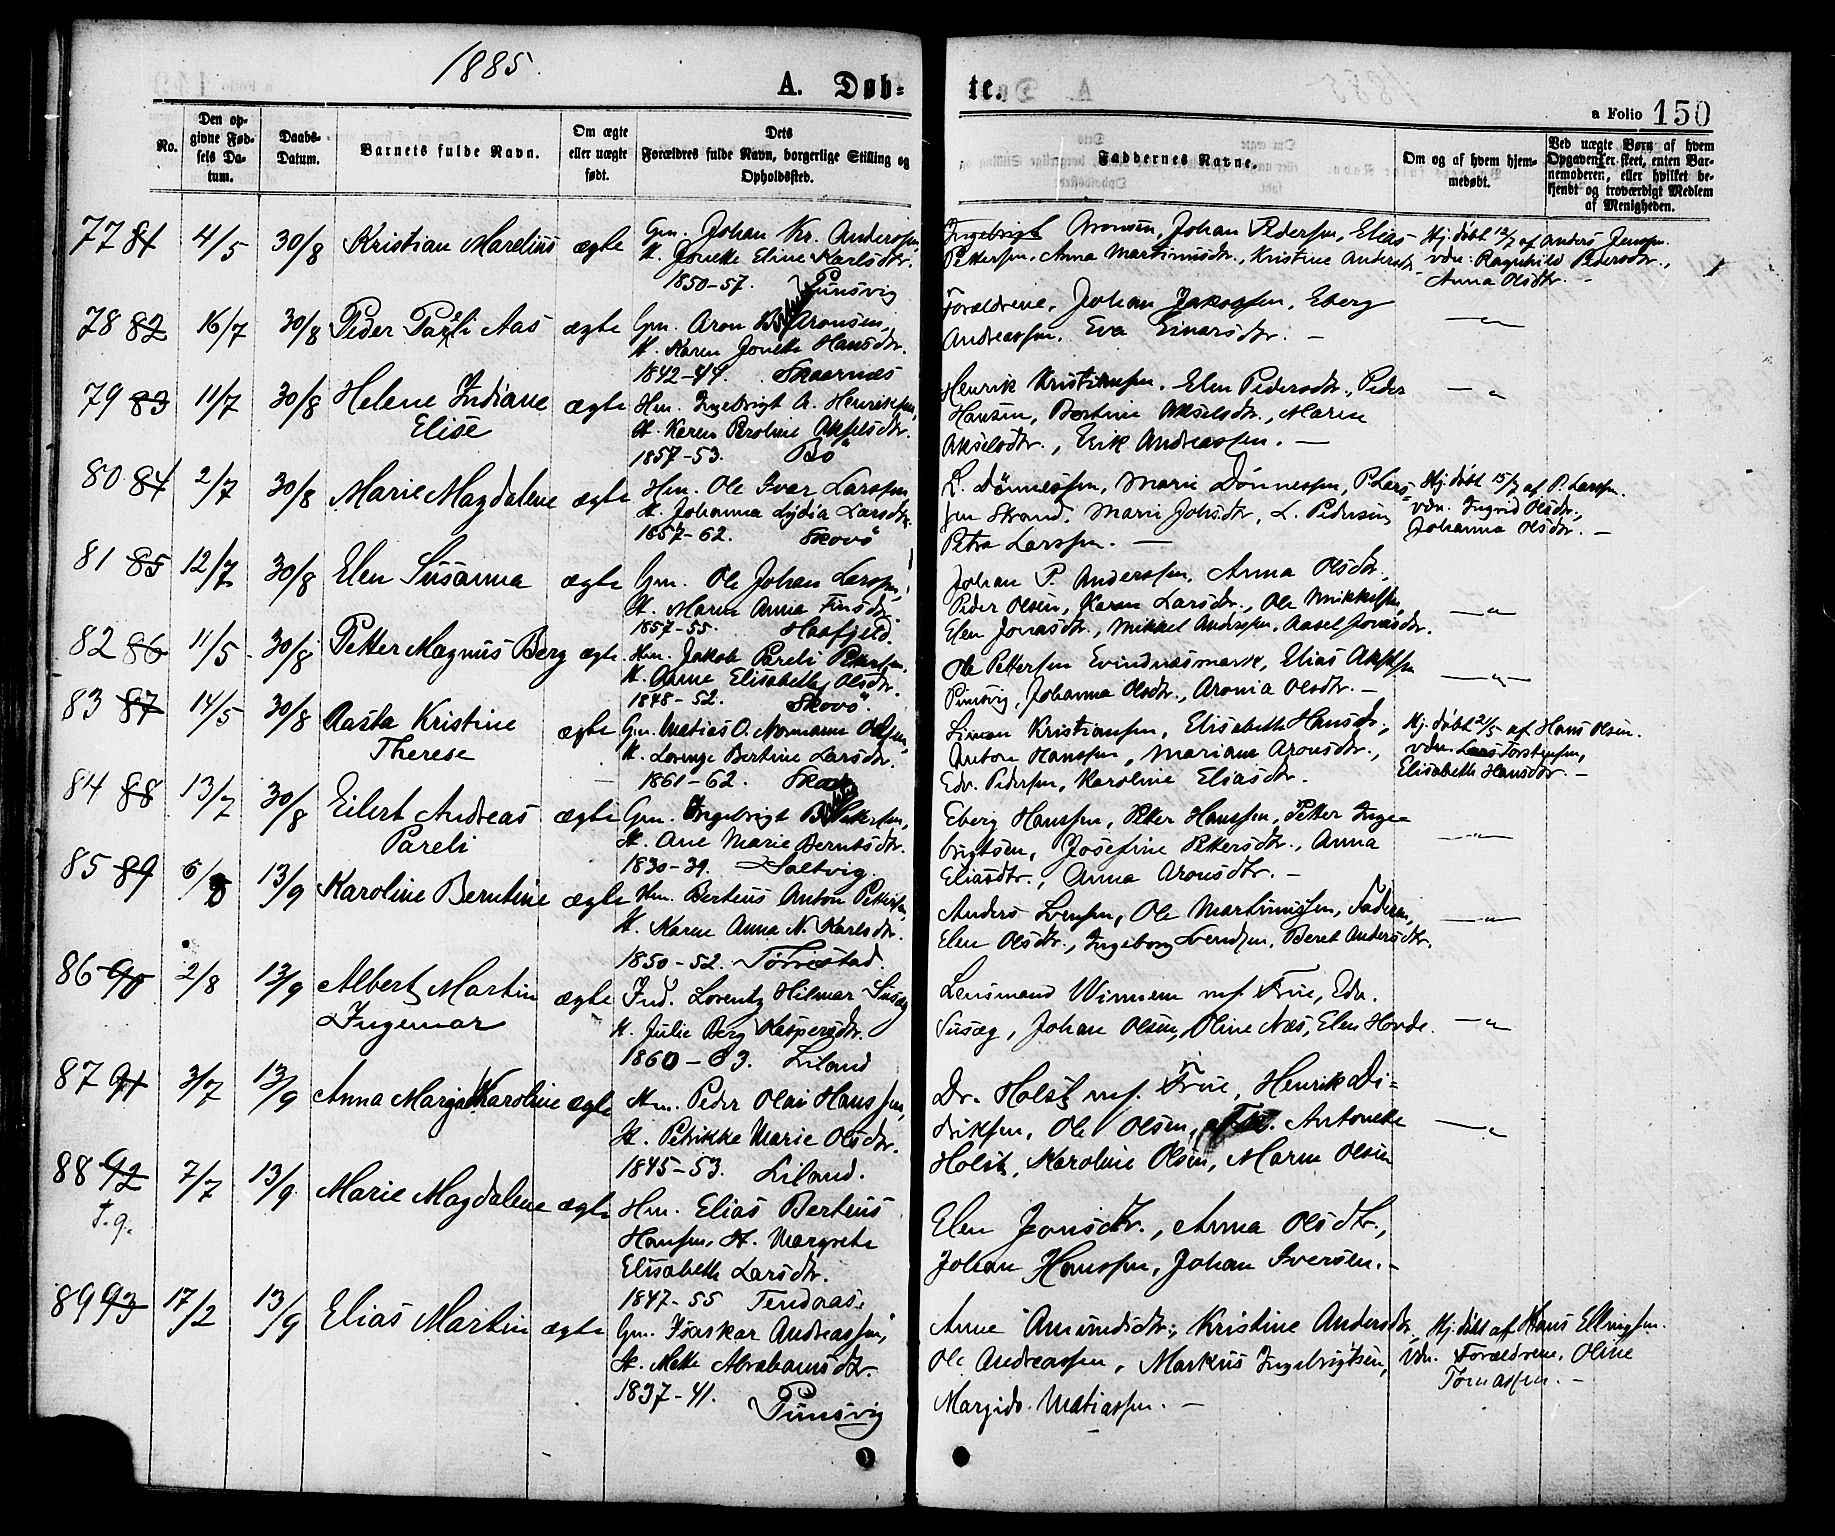 1885.
A. Døb-
te.
a Folio 150
No.
Den op-
givne Fød-
sels Da-
tum.
Daabs-
Datum.
Barnets fulde Navn.
Om ægte
eller uægte
født.
Dets
Forældres fulde Navn, borgerlige Stilling og
Opholdssted.
Faddernes Navne.
Om og af hvem hjem-
medøbt.
Ved uægte Børn af hvem
Opgaven er skeet, enten Bar-
nemoderen, eller hvilket be-
kjendt og troværdigt Medlem
af Menigheden.
77 81 4/5 30/8 Kristian Marelius ægte
Gm. Johan Kr. Anderssen
H. Jonette Eline Karlsdtr.
1850-57. Punsvig
Ingebrigt Aronsen, Johan Pedersen, Elias
Pettersen, Anna Martinusdtr., Kristine Andersdtr.
Hj. døbt 12/7 af Anders Jenssen.
vdn. Ragnhild Pedersdtr.,
Anna Olsdtr. -
78 82 16/7 30/8 Peder Pareli Aas ægte
Gm. Aron B. Aronsen,
H. Karen Jonette Hansdtr.
1842-44. Skaarnæs
Forældrene, Johan Jakobsen, Eberg
Andreassen, Eva Einarsdtr. -
-"-
79 83 11/7 30/8 Helene Indiane
Elise ægte
Hm. Ingebrigt A. Henriksen,
H. Karen Peroline Akselsdtr.
1857-53. Bö
Henrik Kristiansen, Elen Pedersdtr., Peder
Hansen, Bertine Akselsdtr., Maren
Akselsdtr., Erik Andreassen. -
-"-
80 84 2/7 30/8 Marie Magdalene ægte
Hm. Ole Ivar Larssen
H. Johanna Lydia Larsdtr.
1857-62. Skovö
L. Dönnessen, Marie Dönnessen, P. Lars-
sen Strand, Marie Johsdtr, L. Pedersen,
Petra Larssen. -
Hj. døbt 15/7 af P. Larssen.
vdn. Ingrid Olsdtr.,
Johanna Olsdtr. -
81 85 12/7 30/8 Elen Susanna ægte
Gm. Ole Johan Larssen,
H. Maren Anna Finsdtr.
1857-55. Haafjeld.
Johan P. Anderssen, Anna Olsdtr.,
Peder Olsen, Karen Larsdtr., Ole Mikkelsen,
Elen Jonasdtr., Mikkel Andersen, Aasel Jonasdtr.
-"-
82 86 11/5 30/8 Petter Magnus Berg ægte
Hm. Jakob Pareli Pettersen
H. Anne Elisabeth Olsdtr.
1848-52. Skovö.
Ole Pettersen Evindnæsmark, Elias Akselsen
Punsvig, Johanna Olsdtr., Aronia Olsdtr. -
-"-
83 87 14/5 30/8 Aasta Kristine
Therese ægte
Gm. Matias O. Normann Olsen,
H. Lorenze Bertine Larsdtr.
1861-62.
Simon Kristiansen, Elisabeth Hansdtr.,
Anton Hanssen, Mariane Aronsdtr.,
Edv. Pedersen, Karoline Eliasdtr.
Hj. døbt 21/5 af Hans Olsen.
vdn. Lars Torstensen,
Elisabeth Hansdtr. -
84 88 13/7 30/8 Eilert Andreas
Pareli ægte
Gm. Ingebrigt B. Pettersen,
H. Ane Marie Berntsdtr.
1830-39. Saltvig.
Eberg Hanssen, Peter Hanssen, Petter Inge-
brigtsen, Josefine Pettersdtr., Anna
Eliasdtr., Anna Aronsdtr. -
-"-
85 89 6/8 13/9 Karoline Berntine ægte
Hm. Berteus Anton Pettersen,
H. Karen Anna N. Karlsdtr.
1850-52. Törrestad.
Anders Svensen, Ole Martinussen, Faderen,
Elen Olsdtr., Ingeborg Svendsen, Beret Andersdtr.
-"-
86 90 2/8 13/9 Albert Martin
Ingemar ægte
Ind. Lorentz Hilmar Susæg
H. Julie Berg Kaspersdtr.
1860-63. Liland
Lensmand Winnem m/. Frue, Edv.
Susæg, Johan Olsen, Oline Næs, Elen Hovde.
-"-
87 91 3/7 13/9 Anna Margat Karoline ægte
Hm. Peder Olai Hanssen,
H. Petrikke Marie Olsdtr.
1845-53. Liland.
Dr. Holst m/. Frue, Henrik Di-
driksen, Ole Olsen, Antonette
Holst, Karoline Olsen, Maren Olsen
-"-
88 92 7/7 13/9 Marie Magdalene ægte
Hm. Elias Berteus
Hansen, H. Margrete
Elisabeth Larsdtr.
1847-55 Tendaas.
Elen Jonsdtr., Anna Olsdtr.,
Johan Hanssen, Johan Iversen. -
89 93 17/2 13/9 Elias Martin ægte
Gm. Isaskar Andreassen,
H. Mette Abrahamsdtr.
1837-41.
Punsvig
Anne Amundsdtr., Kristine Andersdtr.,
Ole Andreassen, Markus Ingebrigtsen,
Margido Matiassen. -
Hj. døbt af Hans Ellingsen.
Vdn. Forældrene, Oline
Tomassen. -